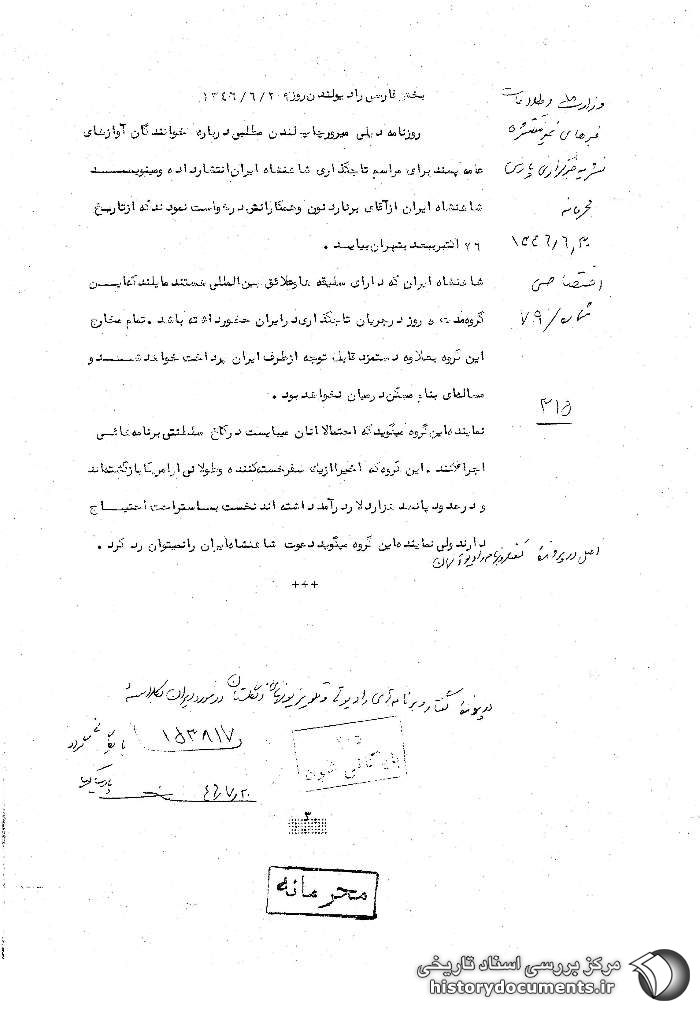 بخش فارسی رادیو لندن روز ۱۳۴۶/۶/۲۰۹
روزنامه دیلی میرور چاپ لندن مطلبی درباره خوانندگان آوازهای
عامه پسند برای مراسم تاجگذاری شاهنشاه ایران انتشار داده و مینویسد
شاهنشاه ایران از آقای برنارد نون و همکارانش درخواست نمودند که از تاریخ
۲۶ اکتبر ببعد بتهران بیایند .
شاهنشاه ایران که دارای سلیقه ها و علائق بین المللی هستند مایلند که این
گروه مدت ۵ روز در جریان تاجگذاری در ایران حضور داشته باشد . تمام مخارج
این گروه بعلاوه دستمزد قابل توجه از طرف ایران پرداخت خواهد شد و
مسالهای بنام مسکن در میان نخواهد بود .
نماینده این گروه میگوید که احتمالا آنان میبایست در کاخ سلطنتی برنامه هائی
اجرا کنند . این گروه که اخیرا از یک سفر خسته کننده و طولانی از امریکا بازگشته اند
و در حدود پانصد هزار دلار درآمد داشته اند نخست به استراحت احتیاج
دارند ولی نماینده این گروه میگوید دعوت شاهنشاه ایران را نمیتوان رد کرد .
+++
وزارت اطلاعات
خبرهای غیر منتشره
نشریه خبرگزاری پارس
محرمانه
۱۳۴۶/۶/۳۰
اختصاصی
شماره/۷۹
۳۱۵
اصل در پرونده
در پرونده گفتار و برنامه های رادیوئی و تلویزیونهای انگلستان در مورد ایران بکلاسه
۱۵۳۸۱۷ بایگانی گردد
۴۶/۷/۲۰
بایگانی شود
۳
محرمانه
مرکز بررسی اسناد تاریخی
historydocuments.ir